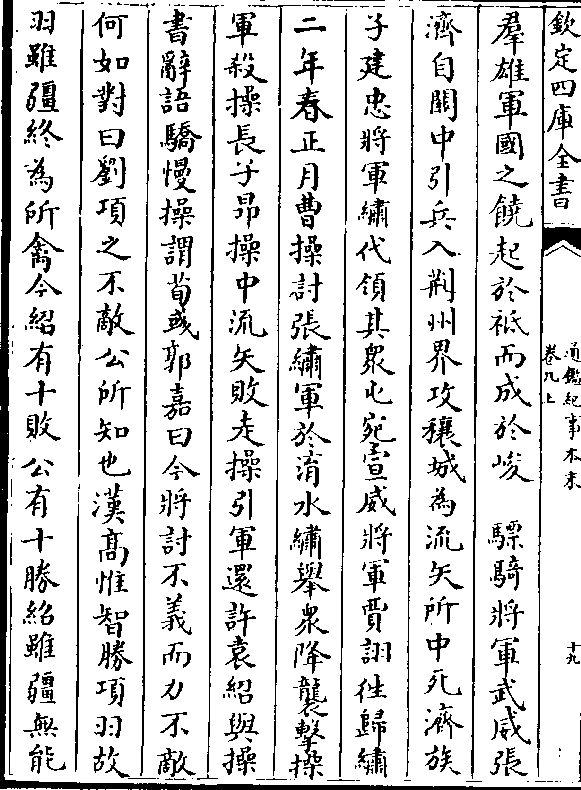 欽定四庫全書
通鑑紀事本末
卷九上
十九
羣雄軍國之饒起於祗而成於峻　驃騎將軍武威張
濟自關中引兵入荆州界攻穰城為流矢所中死濟族
子建忠將軍繡代領其衆屯宛宣威將軍賈詡徃歸繡
二年春正月曹操討張繡軍於淯水繡舉衆降襲擊操
軍殺操長子昂操中流矢敗走操引軍還許袁紹與操
書辭語驕慢操謂荀彧郭嘉曰今將討不義而力不敵
何如對曰劉項之不敵公所知也漢髙惟智勝項羽故
羽雖彊終為所禽今紹有十敗公有十勝紹雖彊無能